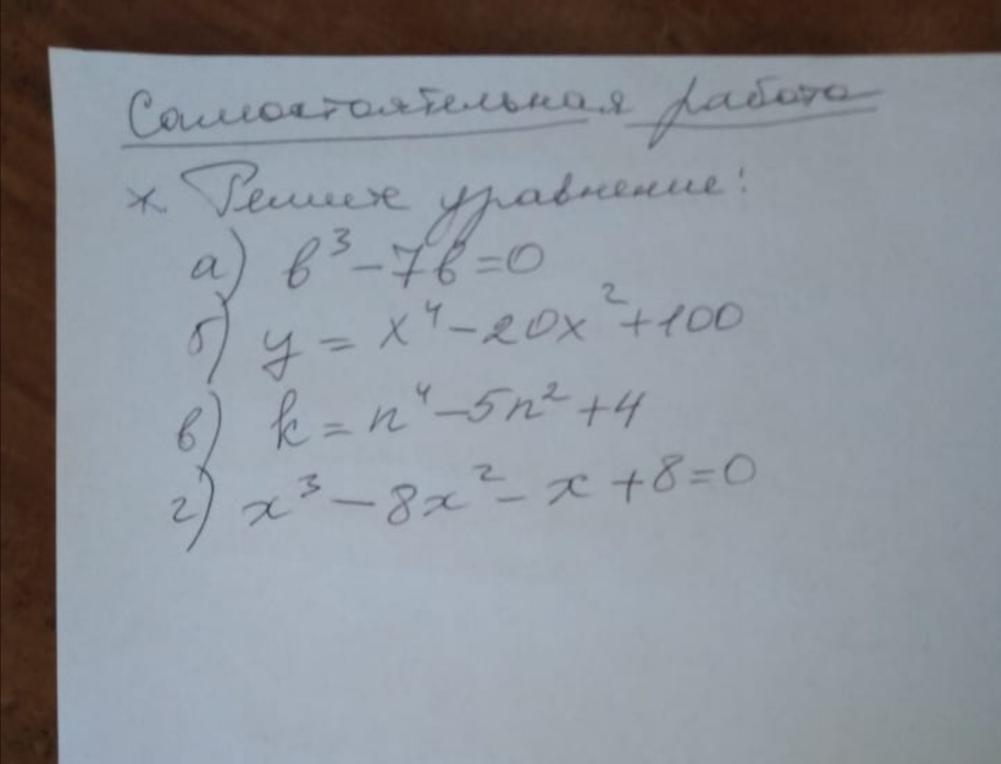 Самостоятельная работа
*. Решите уравнение:
а) b³-7b=0
б) y = x⁴-20x²+100
в) k = n⁴-5n²+4
г) x³-8x²-x+8=0